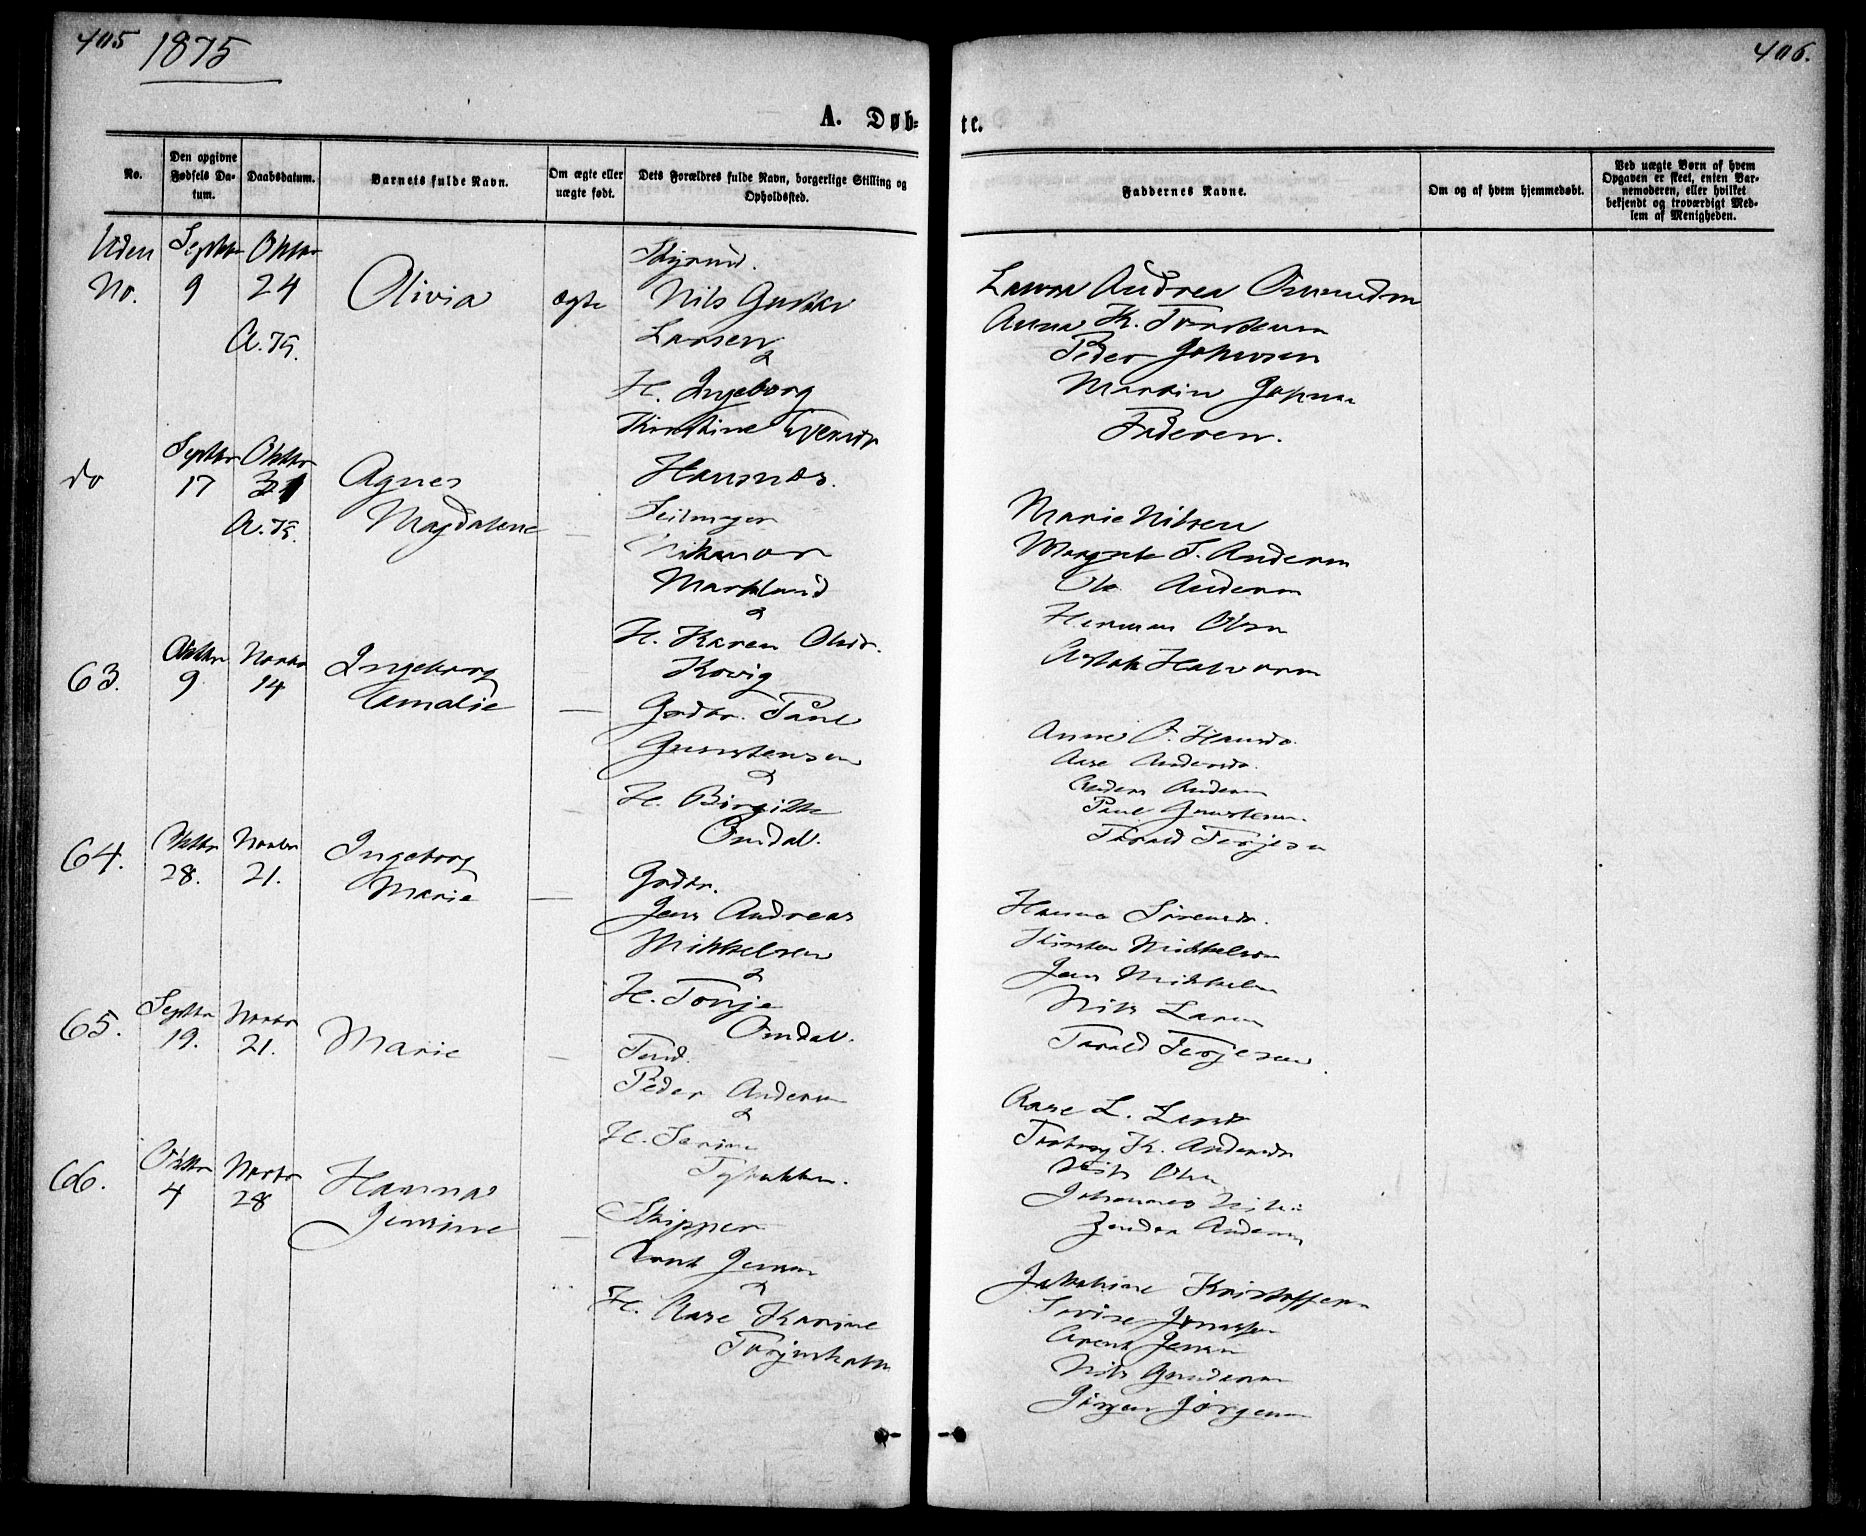 405 1875
406.
A. Døb-
te.
No.
Den opgivne
Fødsels Da-
tum.
Daabsdatum.
Barnets fulde Navn.
Om ægte eller
uægte født.
Dets Forældres fulde Navn, borgerlige Stilling og
Opholdssted.
Faddernes Navne.
Om og af hvem hjemmedøbt.
Ved uægte Børn af hvem
Opgaven er skeet, enten Bar-
nemoderen, eller hvilket
bekjendt og troværdigt Med-
lem af Menigheden.
Uden
No.
Septbr
9
Oktbr
24
A. 75.
Olivia
ægte
Styrmd.
Nils Gustav
Larsen
&
H. Ingeborg
Kirstine
Hansnæs.
Laura Andrea
Anna K.
Peder Johnsen
Martin
Faderen.
do
Septbr
17
Oktbr
31
A. 75.
Agnes
Magdalene
—
Seilmager
Nikanor
Markland
&
H. Karen Olsdr.
Kovig
Marie Nilsen
S. Andersen
Ole Andersen
Herman Olsen
Halvorsen
63.
Oktbr
9
Novbr
14
Ingeborg
Amalie
—
Grdbr. Paul
Gunstensen
&
H. Birgitte
Omdal.
Anne Hansdr.
Aase Andersdr.
Anders Andersen
Paul Gunstensen
Tarald Terjesen
64.
Oktbr
28.
Novbr
21.
Ingeborg
Marie
—
Grdbr.
Jens Andreas
Mikkelsen
&
H. Tonje
Omdal.
Hanna Sørensdr.
Kirsten Mikkelsen
Jens Mikkelsen
Nils Larsen
Tarald Terjesen
65.
Septbr
19.
Novbr
21.
Marie
—
Peder Andersen
&
H. Serine
Aase L.
K. Andersdr
Nils Olsen
Johannes
Andersen
66.
Oktbr
4
Novbr
28
Hanna
Jensine
—
Skipper
Arent Jensen
&
H. Aase Karine
Jakobine Kristoffersen
Arent Jensen
Nils Gundersen
Jørgen Jørgensen